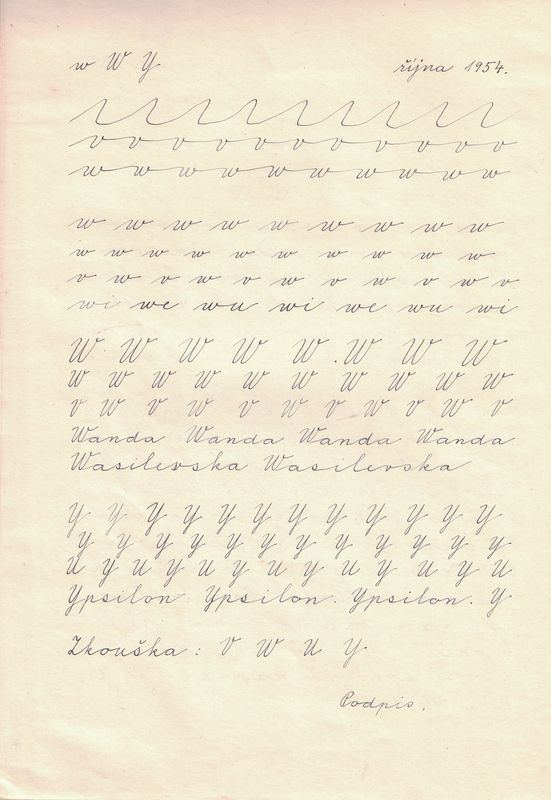 w W Y října 1954.
v v v v v v v v v v v
w w w w w w w w w w
w w w w w w w w w w
w w w w w w w w w w
v w v w v w v w v w v
wi we wu wi we wu wi
W W W W W . W W W
W W W W W W W W W W
V W V W V W V W V W V
Wanda Wanda Wanda Wanda
Wasilevska Wasilevska
Y Y Y Y Y Y Y Y Y Y Y Y
Y Y Y Y Y Y Y Y Y Y Y Y
U Y U Y U Y U Y U Y U Y U
Ypsilon. Ypsilon. Ypsilon. Y
Zkouška : V W U Y
Podpis.